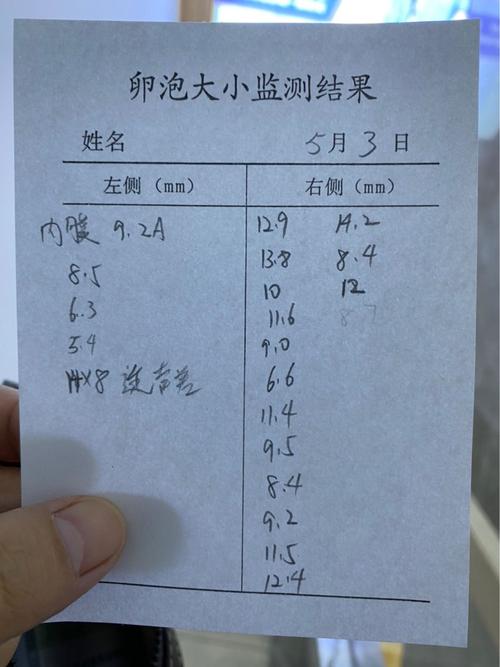 卵泡大小监测结果
姓名 5月3日
左侧（mm） 右侧（mm）
内膜 9.2A
8.5
6.3
5.4
14×8 透声差
12.9 14.2
13.8 8.4
10 12
11.6 8.7
9.0
6.6
11.4
9.5
8.4
9.2
11.5
12.4